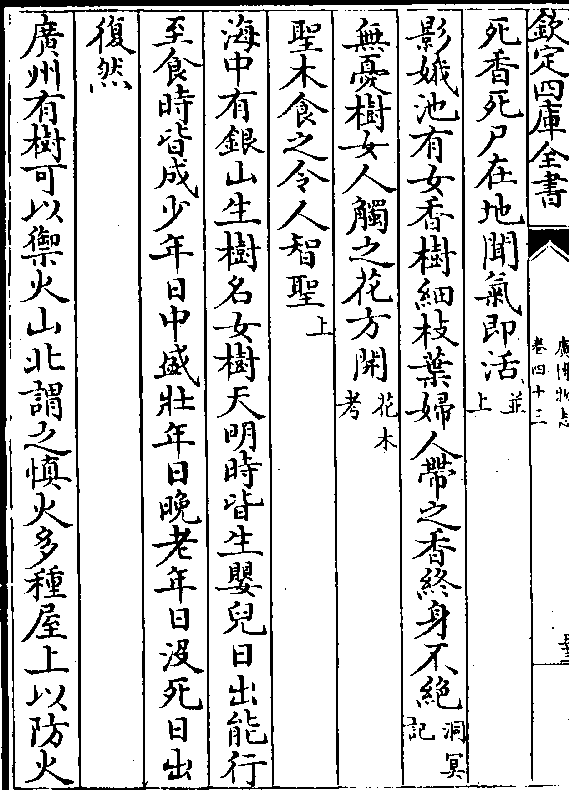 欽定四庫全書
廣博物志
卷四十三
死香死尸在地聞氣即活並上
影娥池有女香樹細枝葉婦人帶之香終身不絕洞冥記
無憂樹女人觸之花方開花木考
聖木食之令人智聖上
海中有銀山生樹名女樹天明時皆生嬰兒日出能行
至食時皆成少年日中盛壯年日晚老年日沒死日出
復然
廣州有樹可以禦火山北謂之慎火多種屋上以防火